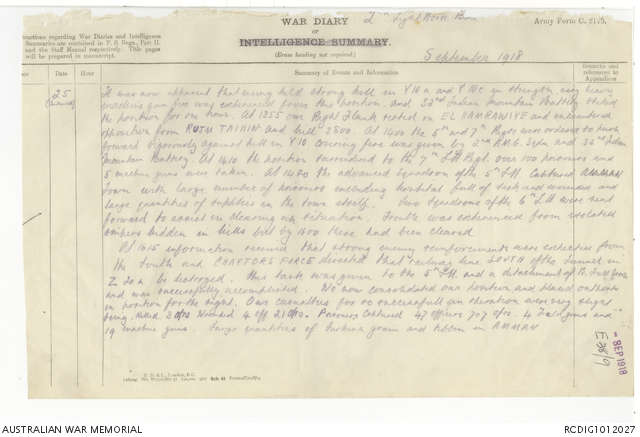 WAR DIARY
2nd Light Horse Bde
OR
INTELLIGENCE SUMMARY.
(Erase heading not required.)
Army Form C. 2118.
Instructions regarding War Diaries and Intelligence
Summaries are contained in F. S. Regs., Part II.
and the Staff Manual respectively. Title pages
will be prepared in manuscript.
September 1918
Date Hour Summary of Events and Information Remarks and references to Appendices
25 It was now apparent that enemy held strong hill in Y10 a and Y10c in strength, very heavy
machine gun fire was experienced from this position and 32nd Indian Mountain Battery shelled
the position for one hour. At 1355 our Right flank rested on EL HAMRAWIYE and encountered
opposition from and hill 2500. At 1400 the 5th and 7th Regts were ordered to push
forward vigorously against hill in Y10 covering fire was given by 2nd A.M.G. Sqdn and 32nd Indian
Mountain Battery. At 1410 the position surrendered to the 7th LH Regt. over 100 prisoners and
5 machine guns were taken. At 1430 the advanced Squadron of the 5th LH captured AMMAN
town with large number of prisoners including hospital full of sick and wounded and
large quantities of supplies in the town itself. Two squadrons of the 6th LH were sent
forward to assist in clearing up situation. Trouble was experienced from isolated
snipers hidden in hills but by 1600 these had been cleared.
At 1615 information received that strong enemy reinforcements were expected from
the South and CHAYTORS FORCE directed that railway line SOUTH of the tunnel in
Z 20 a be destroyed. This task was given to the 5th LH and a detachment of
and was successfully accomplished. We now consolidated our position and placed outposts
in position for the night. Our casualties for so successful an operation were very slight
being. Killed 2 o/ro Wounded 4 off 21 o/ro. Prisoners captured 47 officers 707 o/ro. 4 field guns and
19 machine guns. Large quantities of grain and in AMMAN
SEP 1918
AUSTRALIAN WAR MEMORIAL
RCDIG1012027